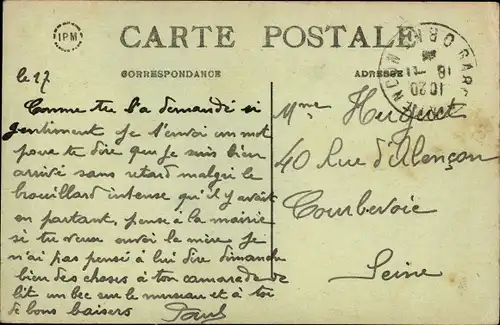 IPM
CARTE POSTALE
CORRESPONDANCE
ADRESSE
le 17
Comme tu l'a demandé si
gentiment je t'envoi un mot
pour te dire que je suis bien
arrivé sans retard malgré le
brouillard intense qu'il y avait
en partant, pense à la mairie
si tu veux envoi la mère je
n'ai pas pensé à lui dire dimanche
bien des choses à ton camarade de
lit un bec sur le museau et à toi
de bons baisers Paul
Mme Huguet
40 Rue d'Alençon
Courbevoie
Seine